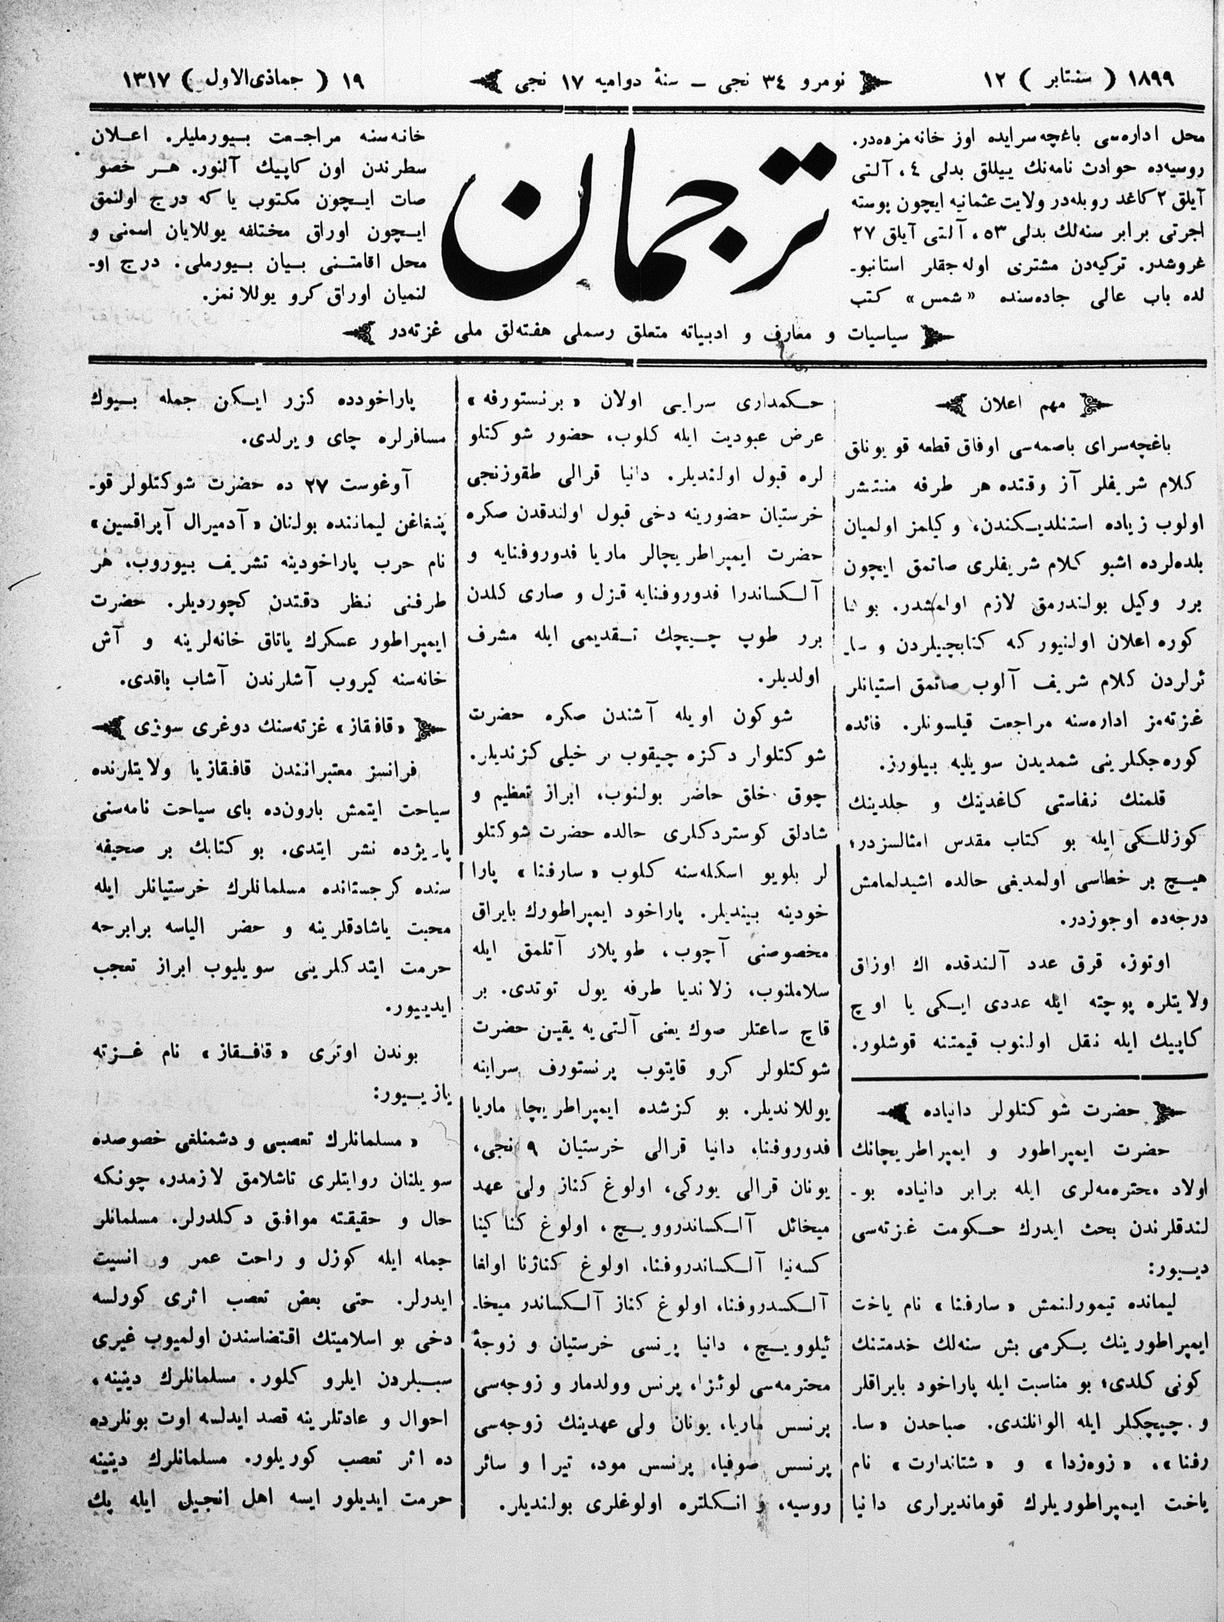 ١٨٩٩ ( سنتابر ) ١٢
نومرو ٣٤ نجی ـ سنهٔ دوامیه ١٧ نجی
١٩ ( جماذی‌الاول ) ١٣١٧
محل اداره‌سی باغچه‌سرایده اوز خانه مزده‌در.
روسیه‌ده حوادث نامه‌نك ییللق بدلی ٤، آلتی
آیلق ٢ کاغد روبله‌در ولایت عثمانیه ایچون پوسته
اجرتی برابر سنه‌لك بدلی ٥٣، آلتی آیلق ٢٧
غروشدر. ترکیه‌دن مشتری اوله‌جقلر استانبو-
لده باب عالی جاده‌سنده «شمس» کتب
ترجمان
خانه‌سنه مراجعت بیورملیلر. اعلان
سطرندن اون کاپیك آلنور. هر خصو
صات ایچون مکتوب یا که درج اولنمق
ایچون اوراق مختلفه یوللایان اسمنی و
محل اقامتنی بیان بیورملی. درج او-
لنمیان اوراق کرو یوللانمز.
سیاسیات و معارف و ادبیاته متعلق رسملی هفته‌لق ملی غزته‌در
مهم اعلان
باغچه‌سرای باصمه‌سی اوفاق قطعه قویوناق
کلام شریفلر آز وقتده هر طرفه منتشر
اولوب زیاده استنلدیکندن، و کیلمز اولمیان
بلده‌لرده اشبو کلام شریفلری صاتمق ایچون
برر وکیل بولندرمق لازم اولمشدر. بوکا
کوره اعلان اولنیور که کتابچیلردن و سا-
ئرلردن کلام شریف آلوب صاتمق استیانلر
غزته‌مز اداره‌سنه مراجعت قیلسونلر. فائده
کوره‌جکلرینی شمدیدن سویلیه بیلورز.
قلمنك نفاستی کاغدینك و جلدینك
کوزللکی ایله بو کتاب مقدس امثالسزدر؛
هیچ بر خطاسی اولمدیغی حالده اشیدلمامش
درجه‌ده اوجوزدر.
اوتوز، قرق عدد آلندقده اك اوزاق
ولایتلره پوچته ایله عددی ایکی یا اوچ
کاپیك ایله نقل اولنوب قیمتنه قوشلور.
حضرت شوکتلولر دانیاده
حضرت ایمپراطور و ایمپراطریچانك
اولاد محترمه‌لری ایله برابر دانیاده بو-
لندقلرندن بحث ایدرك حکومت غزته‌سی
دییور:
لیمانده تیمورلنمش «سارفنا» نام یاخت
ایمپراطورینك یکرمی بش سنه‌لك خدمتنك
کونی کلدی؛ بو مناسبت ایله پاراخود بایراقلر
و چیچکلر ایله الوانلندی. صباحدن «سا-
رفنا»، «زوه‌زدا» و «شتاندارت» نام
یاخت ایمپراطوریلرك قوماندیراری دانیا
حکمداری سرایی اولان «برنستورفه»
عرض عبودیت ایله کلوب، حضور شوکتلو
لره قبول اولندیلر. دانیا قرالی طقوزنجی
خرستیان حضورینه دخی قبول اولندقدن صکره
حضرت ایمپراطریچالر ماریا فدوروفنایه و
آلکساندرا فدوروفنایه قزل و صاری کلدن
برر طوپ چیچك تقدیمی ایله مشرف
اولدیلر.
شو کون اویله آشندن صکره حضرت
شوکتلولر دکزه چیقوب بر خیلی کزندیلر.
چوق خلق حاضر بولنوب، ابراز تعظیم و
شادلق کوستردکلری حالده حضرت شوکتلو
لر بلویو اسکله‌سنه کلوب «سارفنا» پارا
خودینه بیندیلر. پاراخود ایمپراطورك بایراق
مخصوصنی آچوب، طوپلار آتلمق ایله
سلاملنوب، زلاندیا طرفه یول توتدی. بر
قاچ ساعتلر صوك یعنی آلتی‌یه یقین حضرت
شوکتلولر کرو قایتوب برنستورف سراینه
یوللاندیلر. بو کزشده ایمپراطریچا ماریا
فدوروفنا، دانیا قرالی خرستیان ٩ نجی،
یونان قرالی یورکی، اولوغ کناز ولی عهد
میخائل آلکساندروویچ، اولوغ کناکینا
کسه‌نیا آلکساندروفنا، اولوغ کناژنا اولغا
آلکسدروفنا، اولوغ کناز آلکساندر میخا-
ئیلوویچ، دانیا پرنسی خرستیان و زوجهٔ
محترمه‌سی لوئزا، پرنس وولدمار و زوجه‌سی
پرنسس ماریا، یونان ولی عهدینك زوجه‌سی
پرنسس صوفیا، پرنسس مود، تیرا و سائر
روسیه، و انکلتره اولوغلری بولندیلر.
پاراخودده کزر ایکن جمله بیوك
مسافرلره چای ویرلدی.
آوغوست ٢٧ ده حضرت شوکتلولر قو-
پنغاغن لیماننده بولنان «آدمیرال آپراقسین»
نام حرب پاراخودینه تشریف بیوروب، هر
طرفنی نظر دقتدن کچوردیلر. حضرت
ایمپراطور عسکرك یاتاق خانه‌لرینه و آش
خانه‌سنه کیروب آشلرندن آشاب باقدی.
«قافقاز» غزته‌سنك دوغری سوزی
فرانسز معتبراتندن قافقازیا ولایتلرنده
سیاحت ایتمش بارون‌ده بای سیاحت نامه‌سنی
پاریژده نشر ایتدی. بو کتابك بر صحیفه
سنده کرجستانده مسلمانلرك خرستیانلر ایله
محبت یاشادقلرینه و حضر الیاسه برابرجه
حرمت ایتدکلرینی سویلیوب ابراز تعجب
ایدییور.
بوندن اوتری «قافقاز» نام غزته
یازییور:
«مسلمانلرك تعصبی و دشمنلغی خصوصده
سویلنان روایتلری تاشلامق لازمدر، چونکه
حال و حقیقته موافق دکلدرلر. مسلمانلر
جمله ایله کوزل و راحت عمر و انسیت
ایدرلر. حتی بعض تعصب اثری کورلسه
دخی بو اسلامیتك اقتضاسندن اولمیوب غیری
سببلردن ایلرو کلور. مسلمانلرك دینینه،
احوال و عادتلرینه قصد ایدلسه اوت بونلرده
ده اثر تعصب کوریلور. مسلمانلرك دینینه
حرمت ایدیلور ایسه اهل انجیل ایله پك